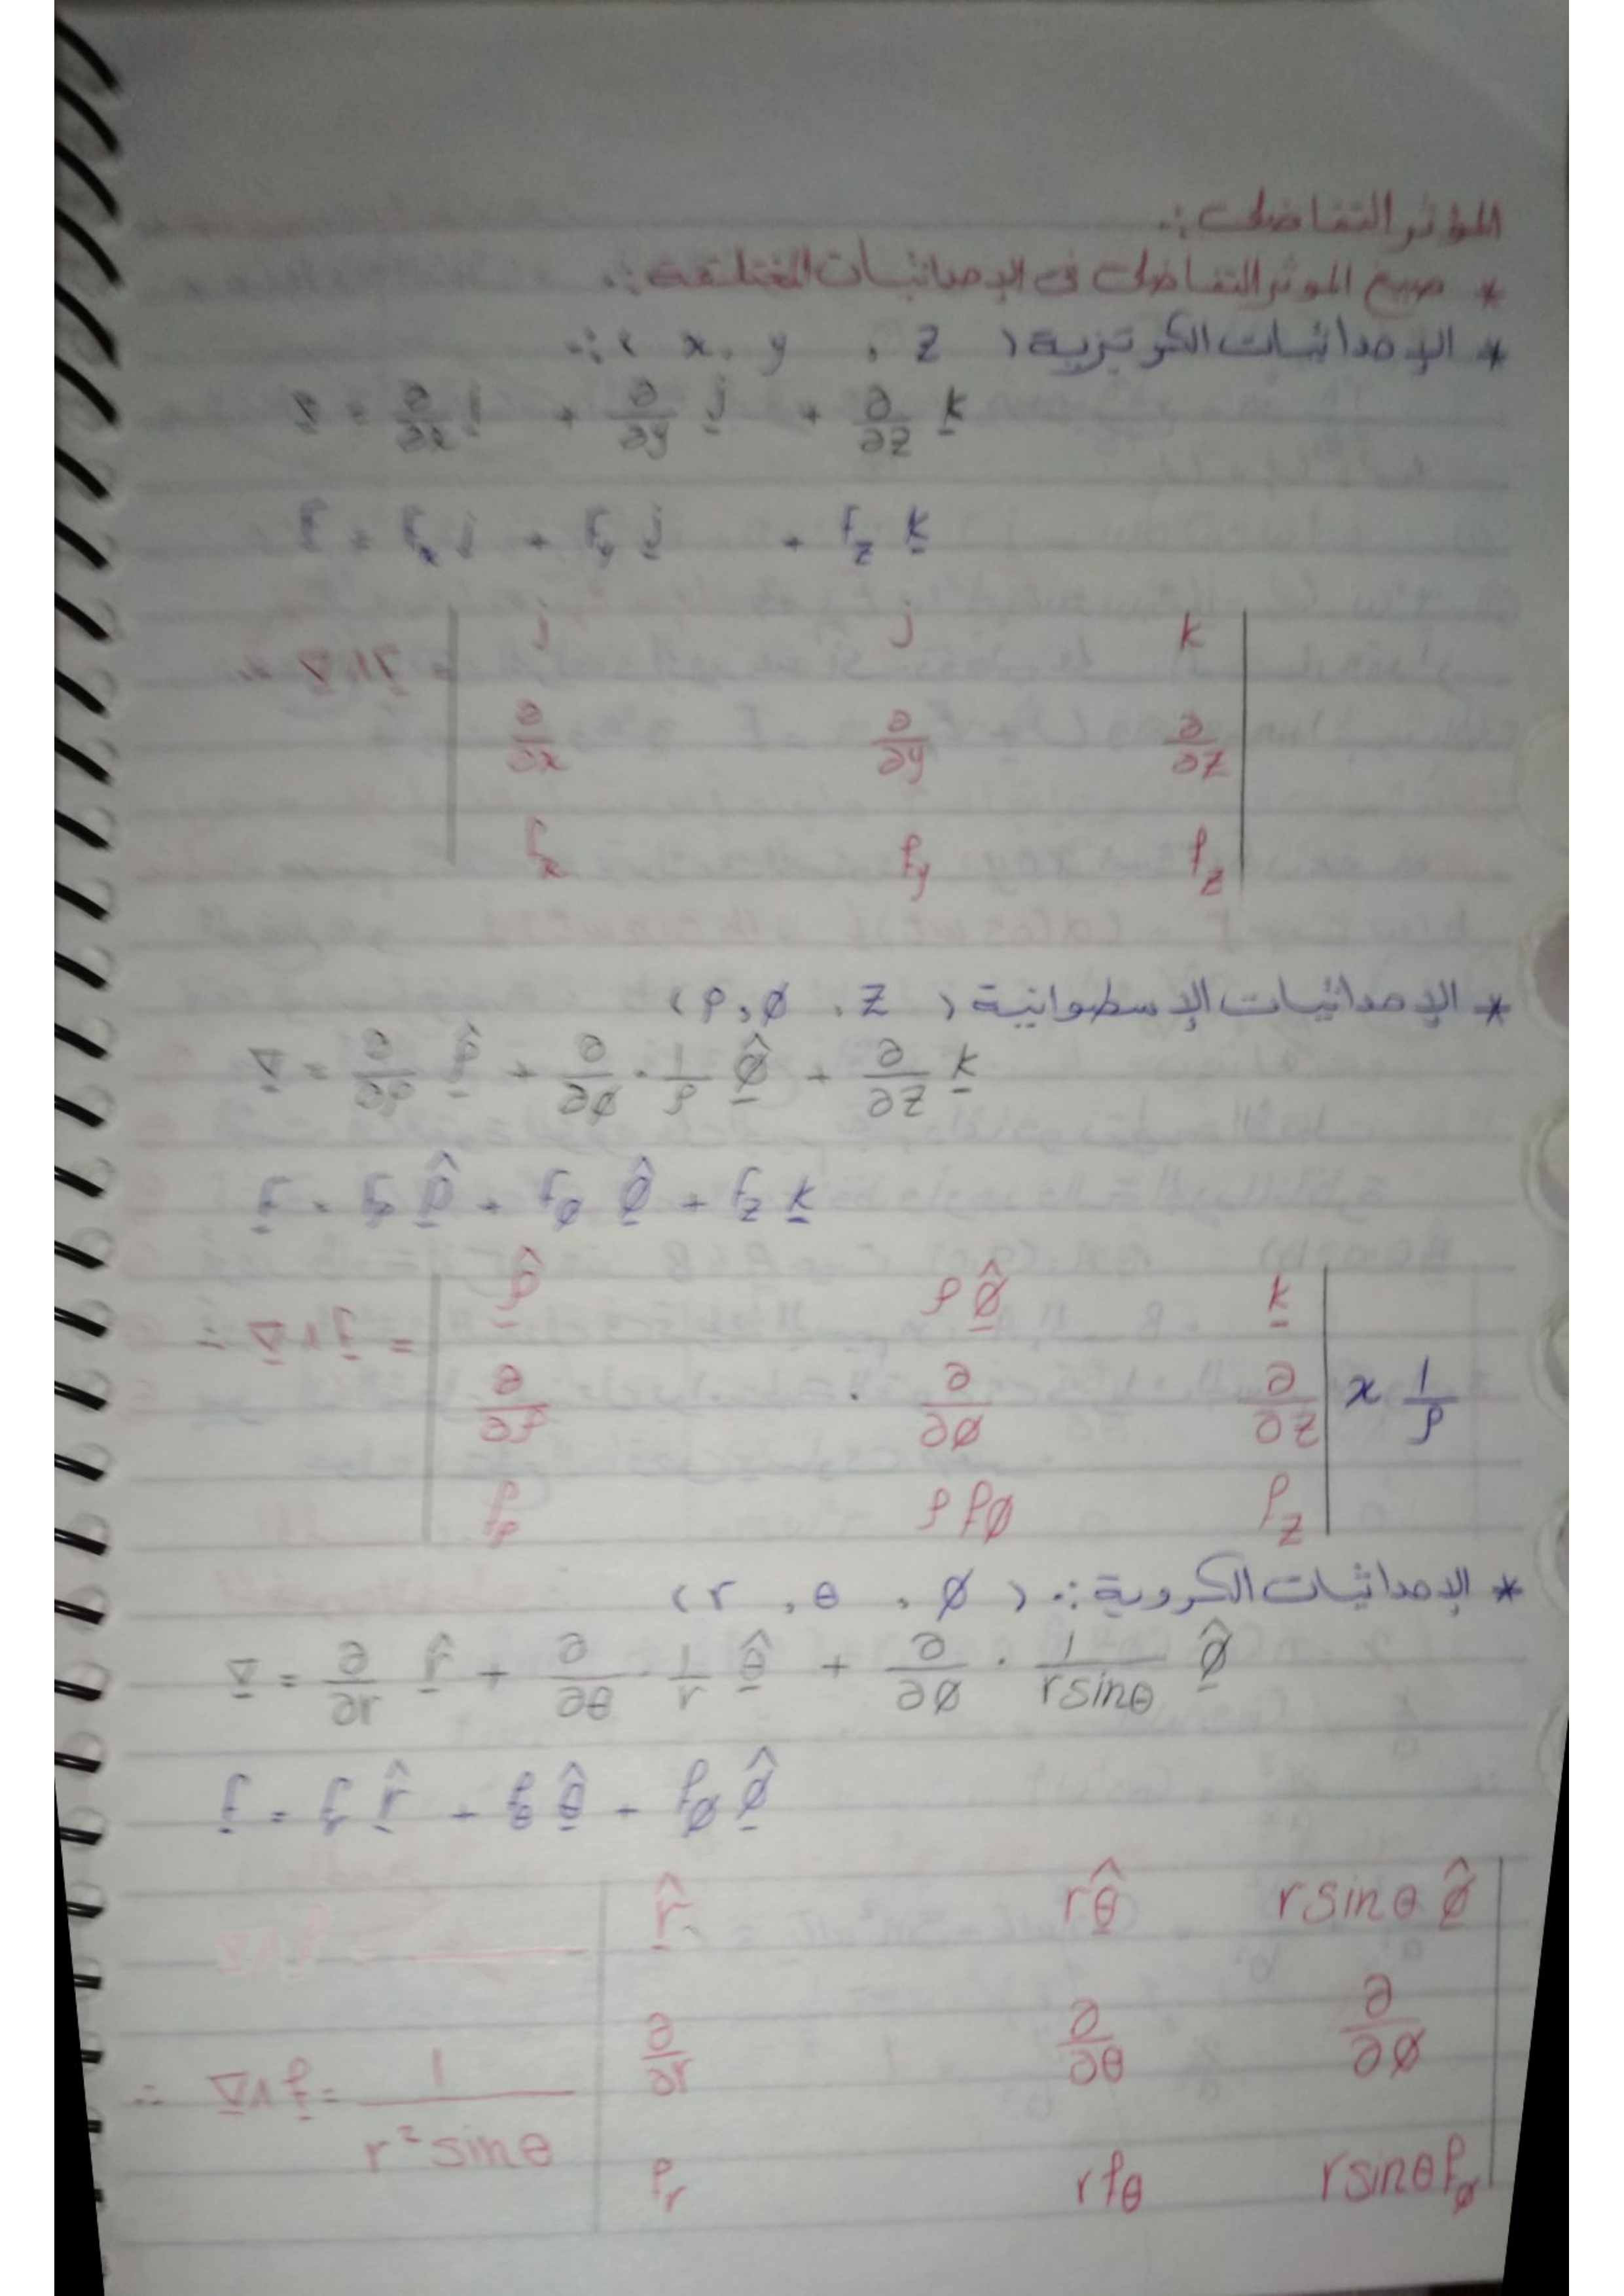 المؤثر التفاضلى :.
* صيغ المؤثر التفاضلى فى الإحداثيات المختلفة :.
* الإحداثيات الكرتيزية ( x, y , z ) :.
∇ = ∂/∂x i + ∂/∂y j + ∂/∂z k
f = fx i + fy j + fz k
∴ ∇∧f = | i j k |
| ∂/∂x ∂/∂y ∂/∂z |
| fx fy fz |
* الإحداثيات الإسطوانية ( ρ, ø , z )
∇ = ∂/∂ρ ρ̂ + ∂/∂ø · 1/ρ ø̂ + ∂/∂z k
f = fρ ρ̂ + fø ø̂ + fz k
∴ ∇∧f = | ρ̂ ρ ø̂ k |
| ∂/∂ρ ∂/∂ø ∂/∂z | x 1/ρ
| fρ ρ fø fz |
* الإحداثيات الكروية :. ( r , θ , ø )
∇ = ∂/∂r r̂ + ∂/∂θ · 1/r θ̂ + ∂/∂ø · 1/rsinθ ø̂
f = fr r̂ + fθ θ̂ + fø ø̂
| r̂ rθ̂ rsinθ ø̂ |
∴ ∇∧f = 1/r²sinθ | ∂/∂r ∂/∂θ ∂/∂ø |
| fr rfθ rsinθfø |